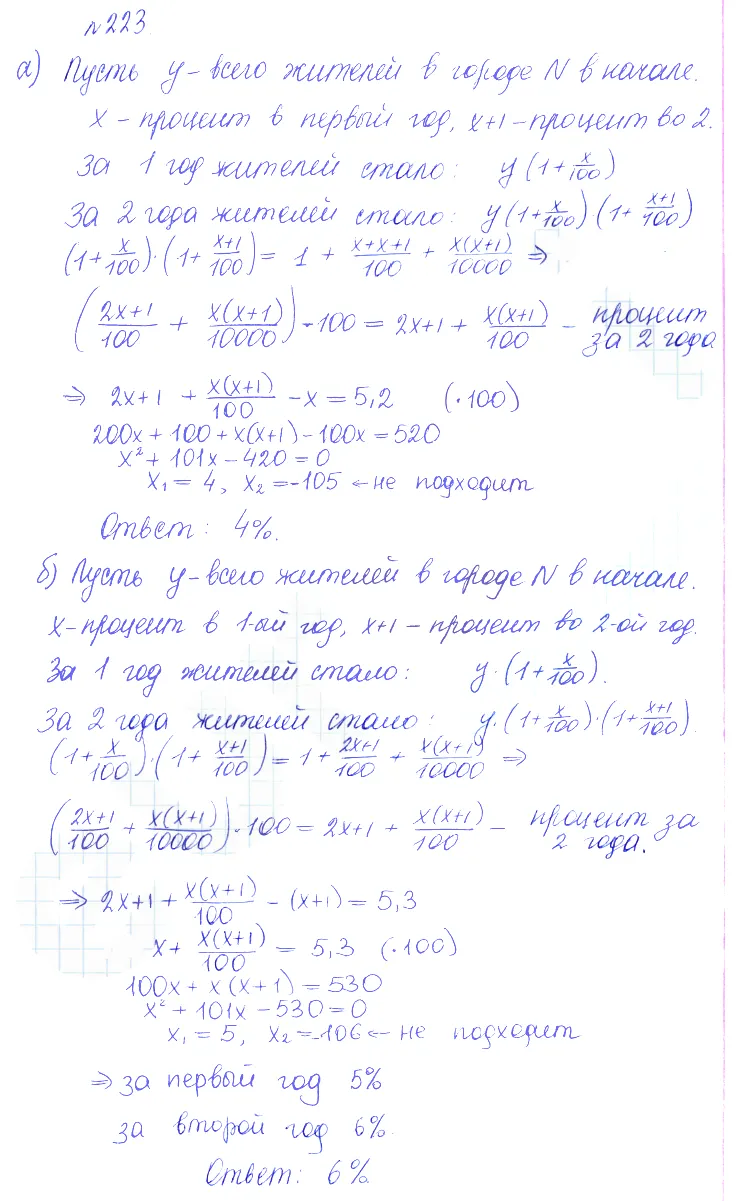 №223
а) Пусть y - всего жителей в городе N в начале.
x - процент в первый год, x+1 - процент во 2.
За 1 год жителей стало: y(1+x/100)
За 2 года жителей стало: y(1+x/100)(1+(x+1)/100)
(1+x/100)·(1+(x+1)/100) = 1 + (x+x+1)/100 + x(x+1)/10000 ⇒
((2x+1)/100 + x(x+1)/10000)·100 = 2x+1 + x(x+1)/100 - процент за 2 года
⇒ 2x+1 + x(x+1)/100 - x = 5,2 (·100)
200x+100+x(x+1)-100x=520
x²+101x-420=0
x₁=4, x₂=-105 ← не подходит
Ответ: 4%.
б) Пусть y - всего жителей в городе N в начале.
x - процент в 1-ый год, x+1 - процент во 2-ой год.
За 1 год жителей стало: y·(1+x/100).
За 2 года жителей стало: y·(1+x/100)·(1+(x+1)/100)
(1+x/100)·(1+(x+1)/100) = 1 + (2x+1)/100 + x(x+1)/10000 ⇒
((2x+1)/100 + x(x+1)/10000)·100 = 2x+1 + x(x+1)/100 - процент за 2 года.
⇒ 2x+1 + x(x+1)/100 - (x+1) = 5,3
x + x(x+1)/100 = 5,3 (·100)
100x + x(x+1) = 530
x²+101x-530=0
x₁=5, x₂=-106 ← не подходит
⇒ за первый год 5%
за второй год 6%.
Ответ: 6%